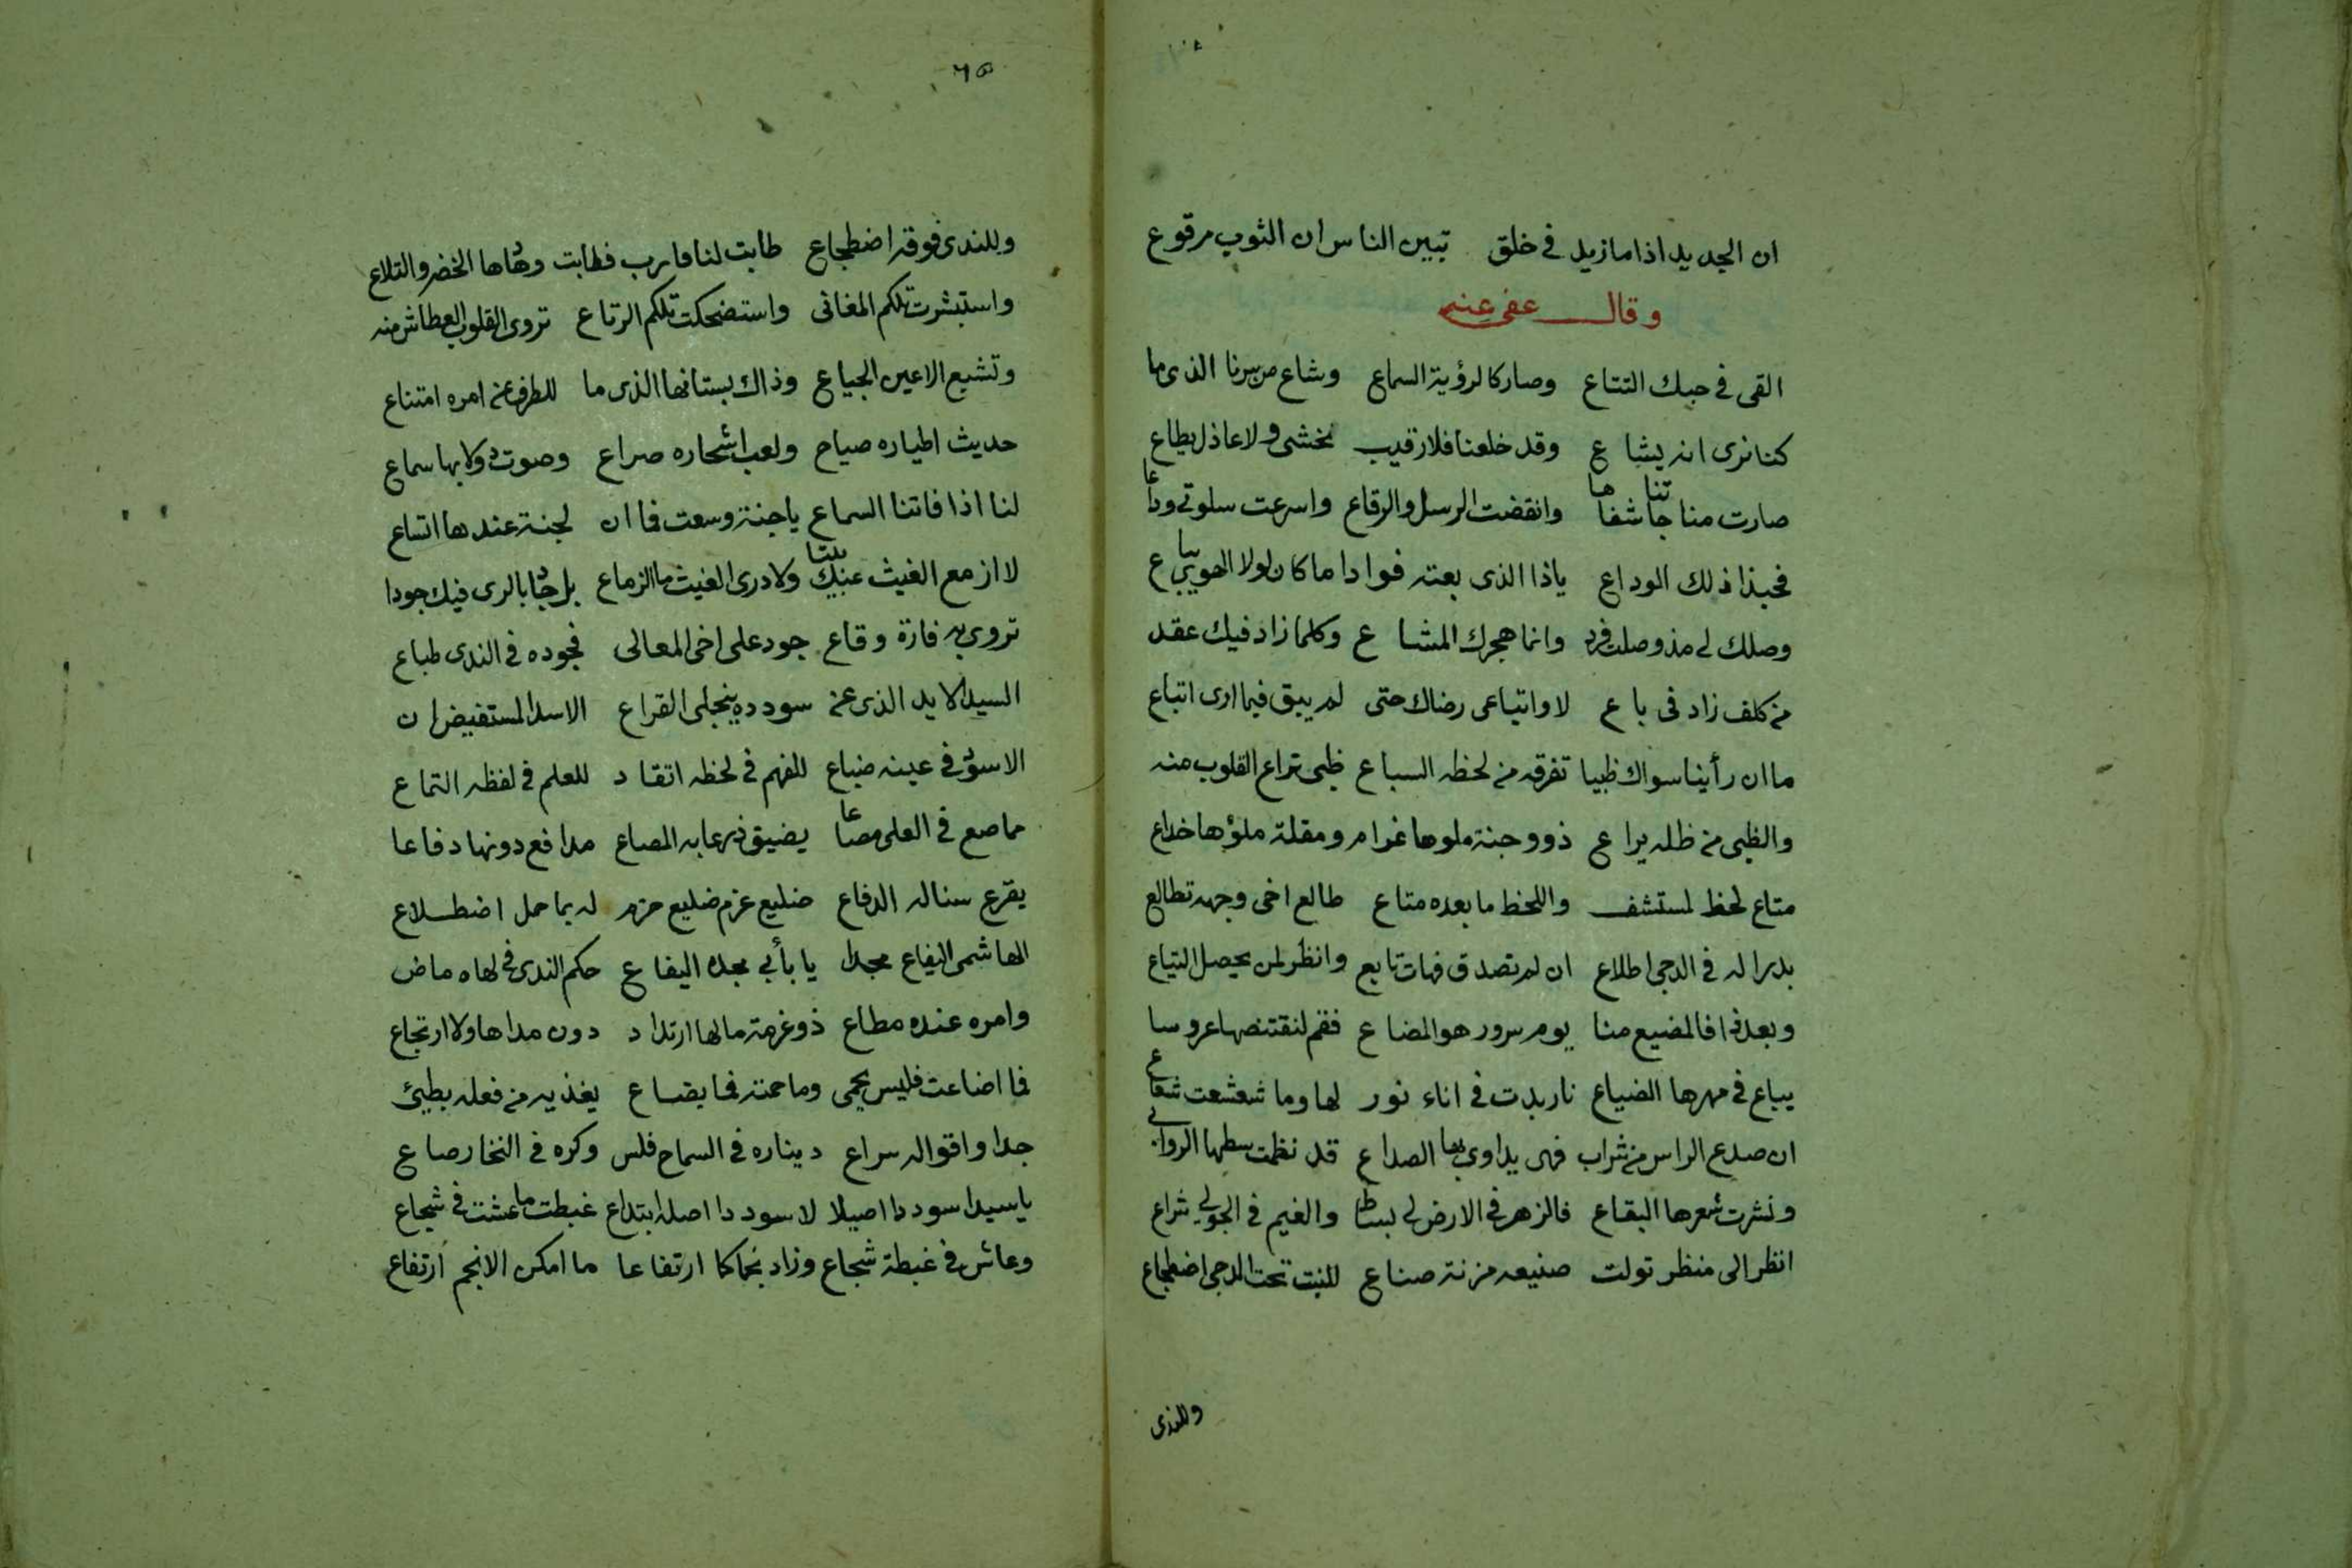 ان الجديد اذا مازيد في خلق تبين الناس ان الثوب مرقوع
وقال عفى عنه
القى في حبك التتاع وصار كالرؤية السماع وشاع من سرنا الذى ما
كنا نرى انه يشاع وقد خلعنا فلا رقيب نخشى ولا عاذل يطاع
صارت مناجاتنا شفاها وانقضت الرسل والرقاع واسرعت سلوتى وداعا
فحبذا ذلك الوداع ياذا الذى بعته فوادا ما كان لولا الهوى يباع
وصلك لى مذ وصلت فرد وانما هجرك المشاع وكلما زاد فيك عقد
من كلف زاد فى باع لا واتباعى رضاك حتى لم يبق فيما ارى اتباع
ما ان رأينا سواك ظبيا تفرقه من لحظه السباع ظبى تراع القلوب منه
والظبى من ظله يراع ذو وجنة ملوها غرام ومقلة ملؤها خداع
متاع لحظ لمستشف واللحظ ما بعده متاع طالع اخى وجهه تطالع
بدرا له في الدجى اطلاع ان لم تصدق فهات تابع وانظر لمن يحصل التياع
وبعد ذا فالمضيع منا يوم سرور هو المضاع فقم لنقتنصها عروسا
يباع في مهرها الضياع نار بدت في اناء نور لها وما شعشعت شعاع
ان صدع الراس من شراب فهى يداوى بها الصداع قد نظمت سطها الروابى
ونثرت شعرها البقاع فالزهر في الارض لى بساط والغيم في الجو لى شراع
انظر الى منظر تولت صنيعه مزنة صناع للنبت تحت الدجى اضطجاع
وللندى
٦٥
وللندى فوقه اضطجاع طابت لنا مارب فطابت وهادها الخضر والتلاع
واستبشرت تلكم المغانى واستضحكت تلكم الرتاع تروى القلوب العطاش منه
وتشبع الاعين الجياع وذاك بستانها الذى ما للطرف عن امره امتناع
حديث اطياره صياح ولعب اشجاره صراع وصوت دولابها سماع
لنا اذا فاتنا السماع ياجنة وسعت فما ان لجنة عندها اتساع
لا ازمع الغيث عنك بينا ولا درى الغيث ما الزماع بل جاد بالرى فيك جودا
تروى به فازة وقاع جود على اخى المعالى فجوده في الندى طباع
السيد الايد الذى عن سودده ينجلى القراع الاسد المستفيض ان
الاسود في عينه ضباع للفهم في لحظه اتقاد للعلم في لفظه التماع
مماصع في العلى مصاعا يضيق ذرعا به المصاع مدافع دونها دفاعا
يقرع سناله الدفاع ضليع عزم ضليع حزم له بما حمل اضطلاع
الهاشمى اليفاع مجدا يا بأبى مجده اليفاع حكم الندى في لهاه ماض
وامره عنده مطاع ذو عزمة مالها ارتداد دون مداها ولا ارتجاع
فما اضاعت فليس يحمى وما حمته فما يضاع يغذيه من فعله بطيئ
جدا واقواله سراع ديناره في السماح فلس وكره في الفخار صاع
ياسيدا سوددا اصيلا لا سوددا اصله ابتداع غبطت ما عشت في شجاع
وعاش في غبطة شجاع وزاد نجماكا ارتفاعا ما امكن الانجم ارتفاع